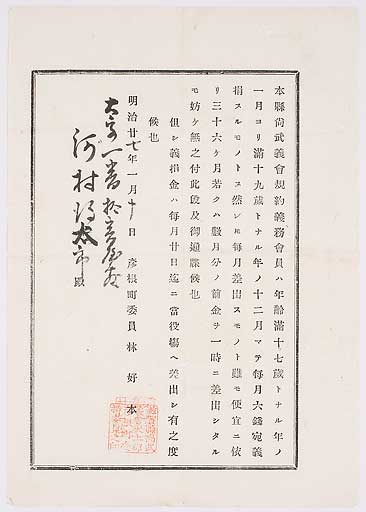 本縣尙武義會規約義務會員ハ年齡滿十七歲トナル年ノ
一月ヨリ滿十九歲トナル年ノ十二月マテ每月六錢宛義
捐スルモノトス然シヒ每月差出スモノト雖モ便宜ニ依
リ三十六ケ月若クハ數月分ノ前金ヲ一時ニ差出シタル
モ妨ケ無之付此段及御通牒候也
但シ義捐金ハ每月廿日迄ニ當役塲ヘ差出シ有之度
候也
明治廿七年一月十日 彥根町委員 林 好本
大字一番
河村 太郎殿